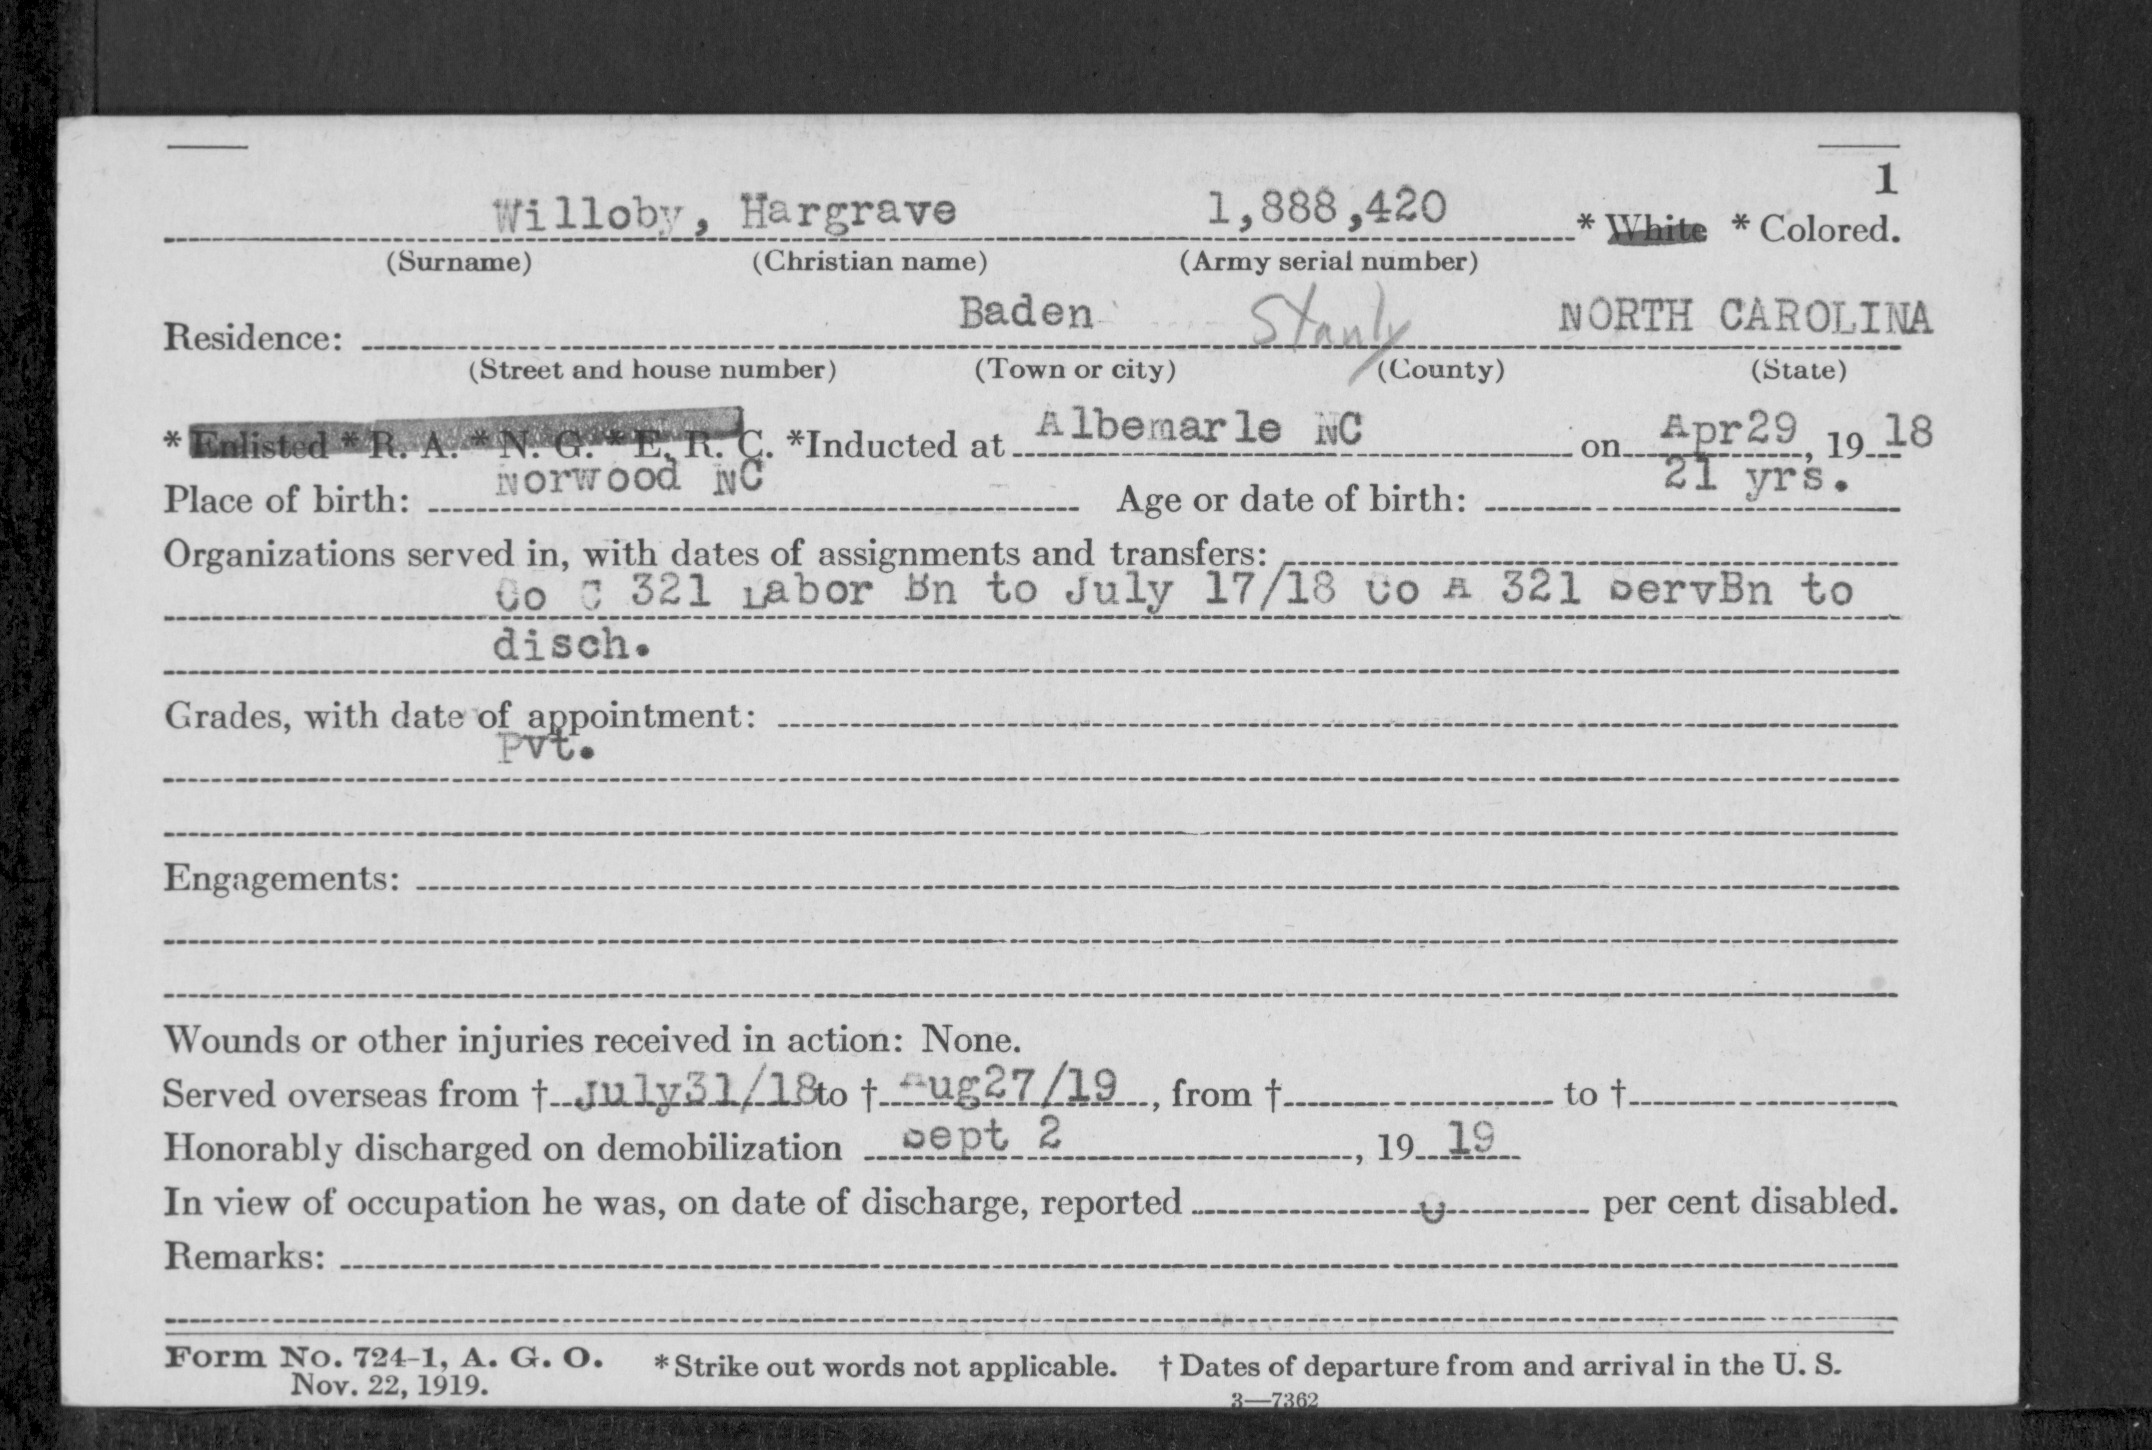 1
Willoby, Hargrave 1,888,420 * White * Colored.
(Surname) (Christian name) (Army serial number)
Residence: Baden Stanly NORTH CAROLINA
(Street and house number) (Town or city) (County) (State)
* Enlisted * R. A. * N. G. * E. R. C. *Inducted at Albemarle NC on Apr29, 1918
Place of birth: Norwood NC Age or date of birth: 21 yrs.
Organizations served in, with dates of assignments and transfers:
Co C 321 Labor Bn to July 17/18 Co A 321 ServBn to
disch.
Grades, with date of appointment:
Pvt.
Engagements:
Wounds or other injuries received in action: None.
Served overseas from † July31/18 to † Aug27/19, from † to †
Honorably discharged on demobilization Sept 2, 1919
In view of occupation he was, on date of discharge, reported 0 per cent disabled.
Remarks:
Form No. 724-1, A. G. O. * Strike out words not applicable. † Dates of departure from and arrival in the U. S.
Nov. 22, 1919.
3—7362